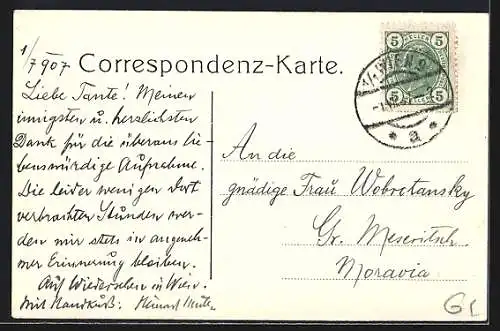 1/7 907
Correspondenz-Karte.
Liebe Tante! Meinen
innigsten u. herzlichsten
Dank für die überaus lie-
benswürdige Aufnahme.
Die leider wenigen dort
verbrachten Stunden wer-
den mir stets in angeneh-
mer Erinnerung bleiben.
Auf Wiedersehen in Wien.
Mit Handkuß:
An die
gnädige Frau Wobretansky
Gr. Meseritsch
Moravia
5 5
5 5
WIEN 9
a